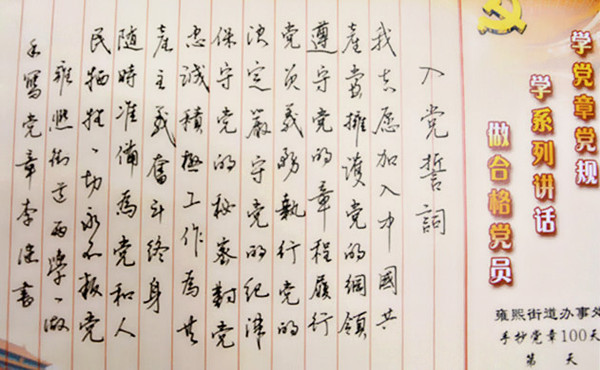 学党章党规
学系列讲话
做合格党员
雍熙街道办事处
手抄党章100天
第 天
入党誓詞
我志愿加入中國共
産党擁護党的綱領
遵守党的章程履行
党员義務執行党的
决定嚴守党的纪律
保守党的秘密對党
忠誠積極工作為共
産主義奮斗終身
随時准備為党和人
民牺牲一切永不叛党
雍熙街道两學一做
手寫党章李書